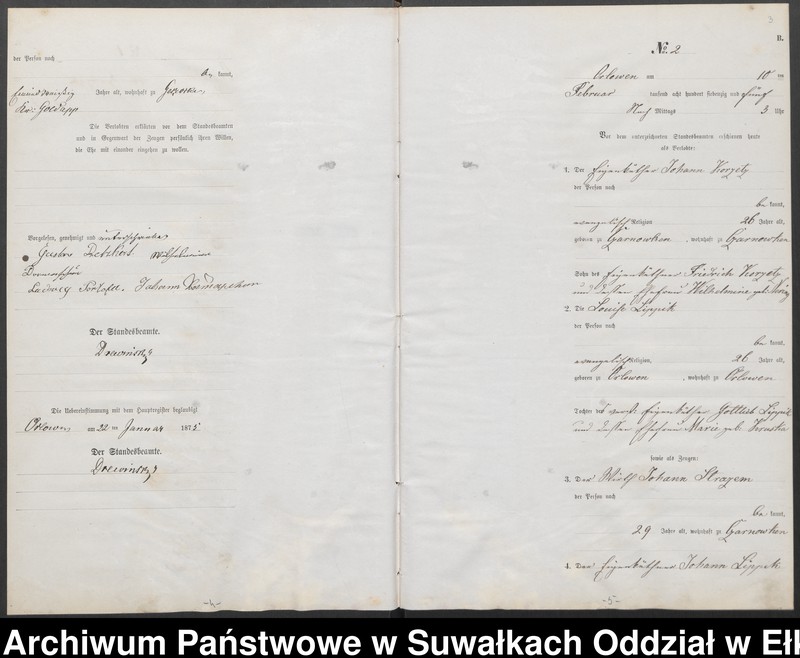 der Person nach
be kannt,
Jahre alt, wohnhaft zu
Kr. Goldapp
Die Verlobten erklärten vor dem Standesbeamten
und in Gegenwart der Zeugen persönlich ihren Willen,
die Ehe mit einander eingehen zu wollen.
Vorgelesen, genehmigt und unterschrieben
Gustav Wilhelmine
Ludwig Johann
Der Standesbeamte.
Drewinsky
Die Uebereinstimmung mit dem Hauptregister beglaubigt
Orlowen am 22 ten Januar 1875
Der Standesbeamte.
Drewinsky
-4-
3
B.
No. 2
Orlowen am 10 ten
Februar tausend acht hundert siebenzig und fünf
Nach Mittags 3 Uhr
Vor dem unterzeichneten Standesbeamten erschienen heute
als Verlobte:
1. Der Eigenkäthner Johann Korzetz
der Person nach
be kannt,
evangelisch Religion 26 Jahre alt,
geboren zu Garnowken, wohnhaft zu Garnowken
Sohn des Eigenkäthner Friedrich Korzetz
und dessen Ehefrau Wilhelmine geb.
2. Die Louise Lippik
der Person nach
be kannt,
evangelisch Religion, 26 Jahre alt,
geboren zu Orlowen, wohnhaft zu Orlowen
Tochter des verst. Eigenkäthner Gottlieb Lippik
und dessen Ehefrau Marie geb. Kruska
sowie als Zeugen:
3. Der Wirth Johann Strazem
der Person nach
be kannt,
29 Jahre alt, wohnhaft zu Garnowken
4. Der Eigenkäthner Johann Lippik
-5-
Archiwum Państwowe w Suwałkach Oddział w Ełk